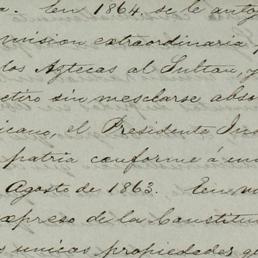 a. En 1864. se le auto
mision extraordinaria
dos Aztecas al Sultan, y
retiro sin mesclarse abso
icano, el Presidente Jua
patria conforme á un
Agosto de 1863. En
expreso de la Constitu
s unicas propiedades qu